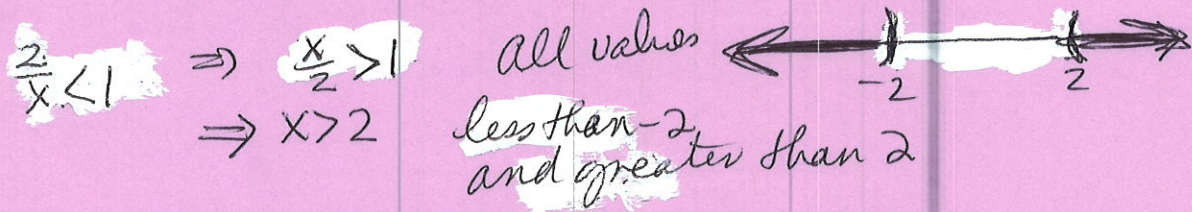 2/x < 1 ⇒ x/2 > 1
⇒ x > 2
All values
less than -2
and greater than 2
-2 2